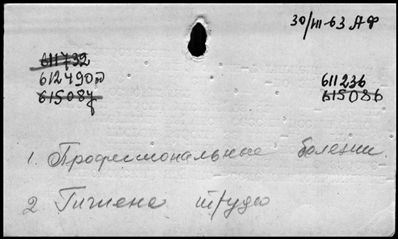 30/III-63 АФ
611732
612490д 611236
615087 615086
1. Профессиональные болезни.
2 Гигиена труда